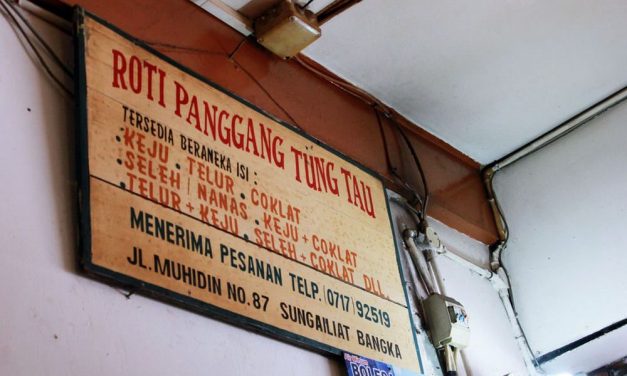 ROTI PANGGANG TUNG TAU
TERSEDIA BERANEKA ISI :
• KEJU • TELUR • COKLAT
• SELEH / NANAS • KEJU + COKLAT
• TELUR + KEJU • SELEH + COKLAT DLL.
MENERIMA PESANAN TELP. (0717) 92519
JL. MUHIDIN NO. 87 SUNGAILIAT BANGKA